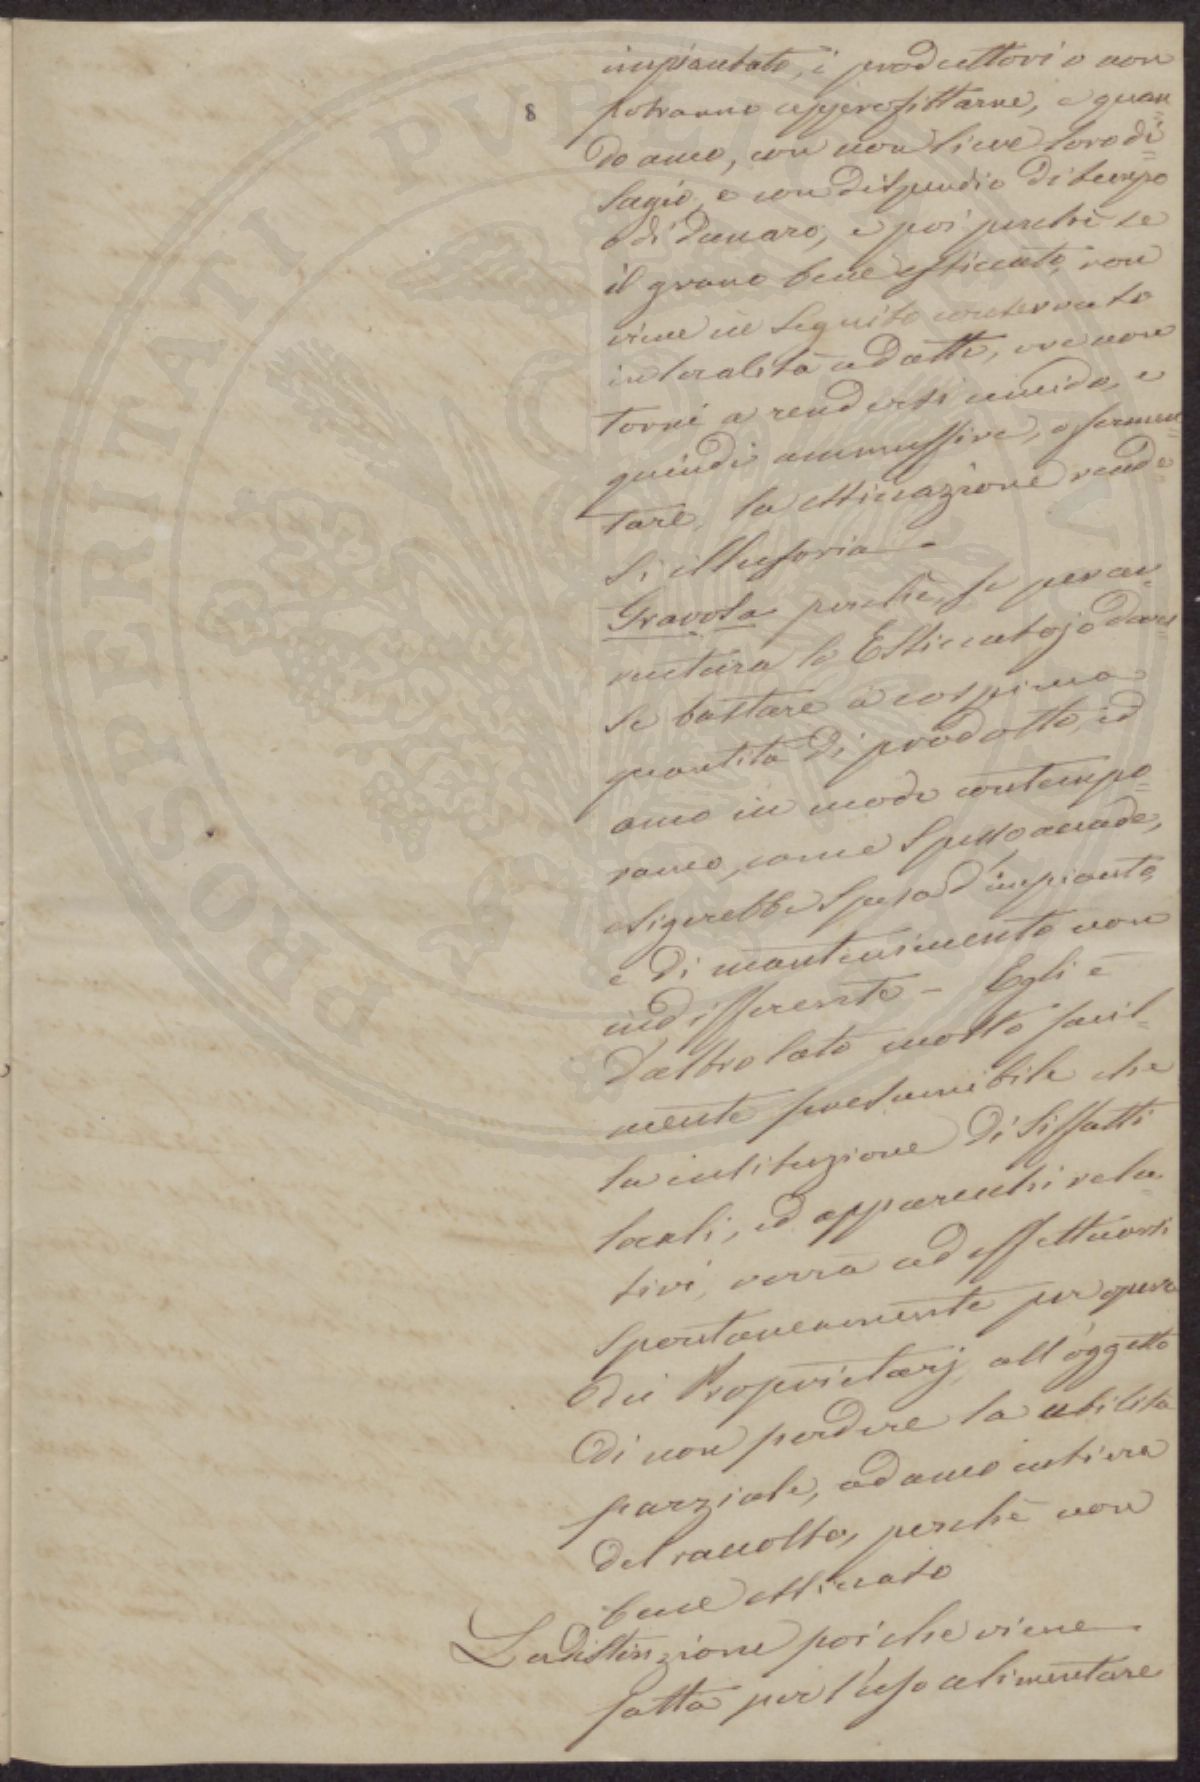 8
impiantato, i produttori o non
potranno approfittarne, e quan=
do anco, con non lieve loro di=
sagio, e con dispendio di tempo
e di danaro, e poi perchè se
il grano bene essiccato, non
viene in seguito conservato
in località adatte, ove non
torni a rendersi umido, e
quindi ammuffire, o fermen=
tare, la essiccazione rende=
si illusoria -
perchè, se per av=
ventura lo Essiccatojo doves=
se bastare a cospicua
quantità di prodotto, ed
anco in modo contempo=
raneo, come spesso accade,
esigerebbe spesa d'impianto,
e di mantenimento non
indifferente - Egli è
d'altro lato molto facil=
mente presumibile che
la instituzione di siffatti
locali, ed apparecchi rela=
tivi, verrà ad effettuarsi
spontaneamente per opera
dei Proprietarj, all'oggetto
di non perdere la utilità
parziale, ad anco intiera
del raccolto, perchè non
bene essiccato
La distinzione poi che viene
fatta per l'uso alimentare
PROSPERITATI PVBLICAE